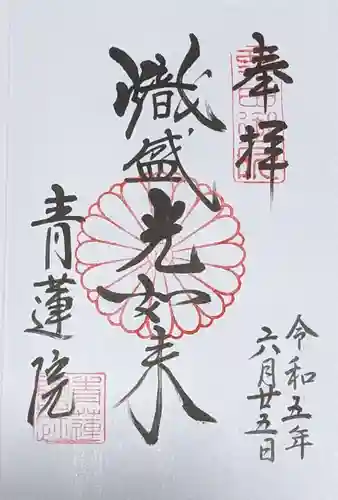 奉拝
令和五年
六月廿五日
熾盛光如来
青蓮院